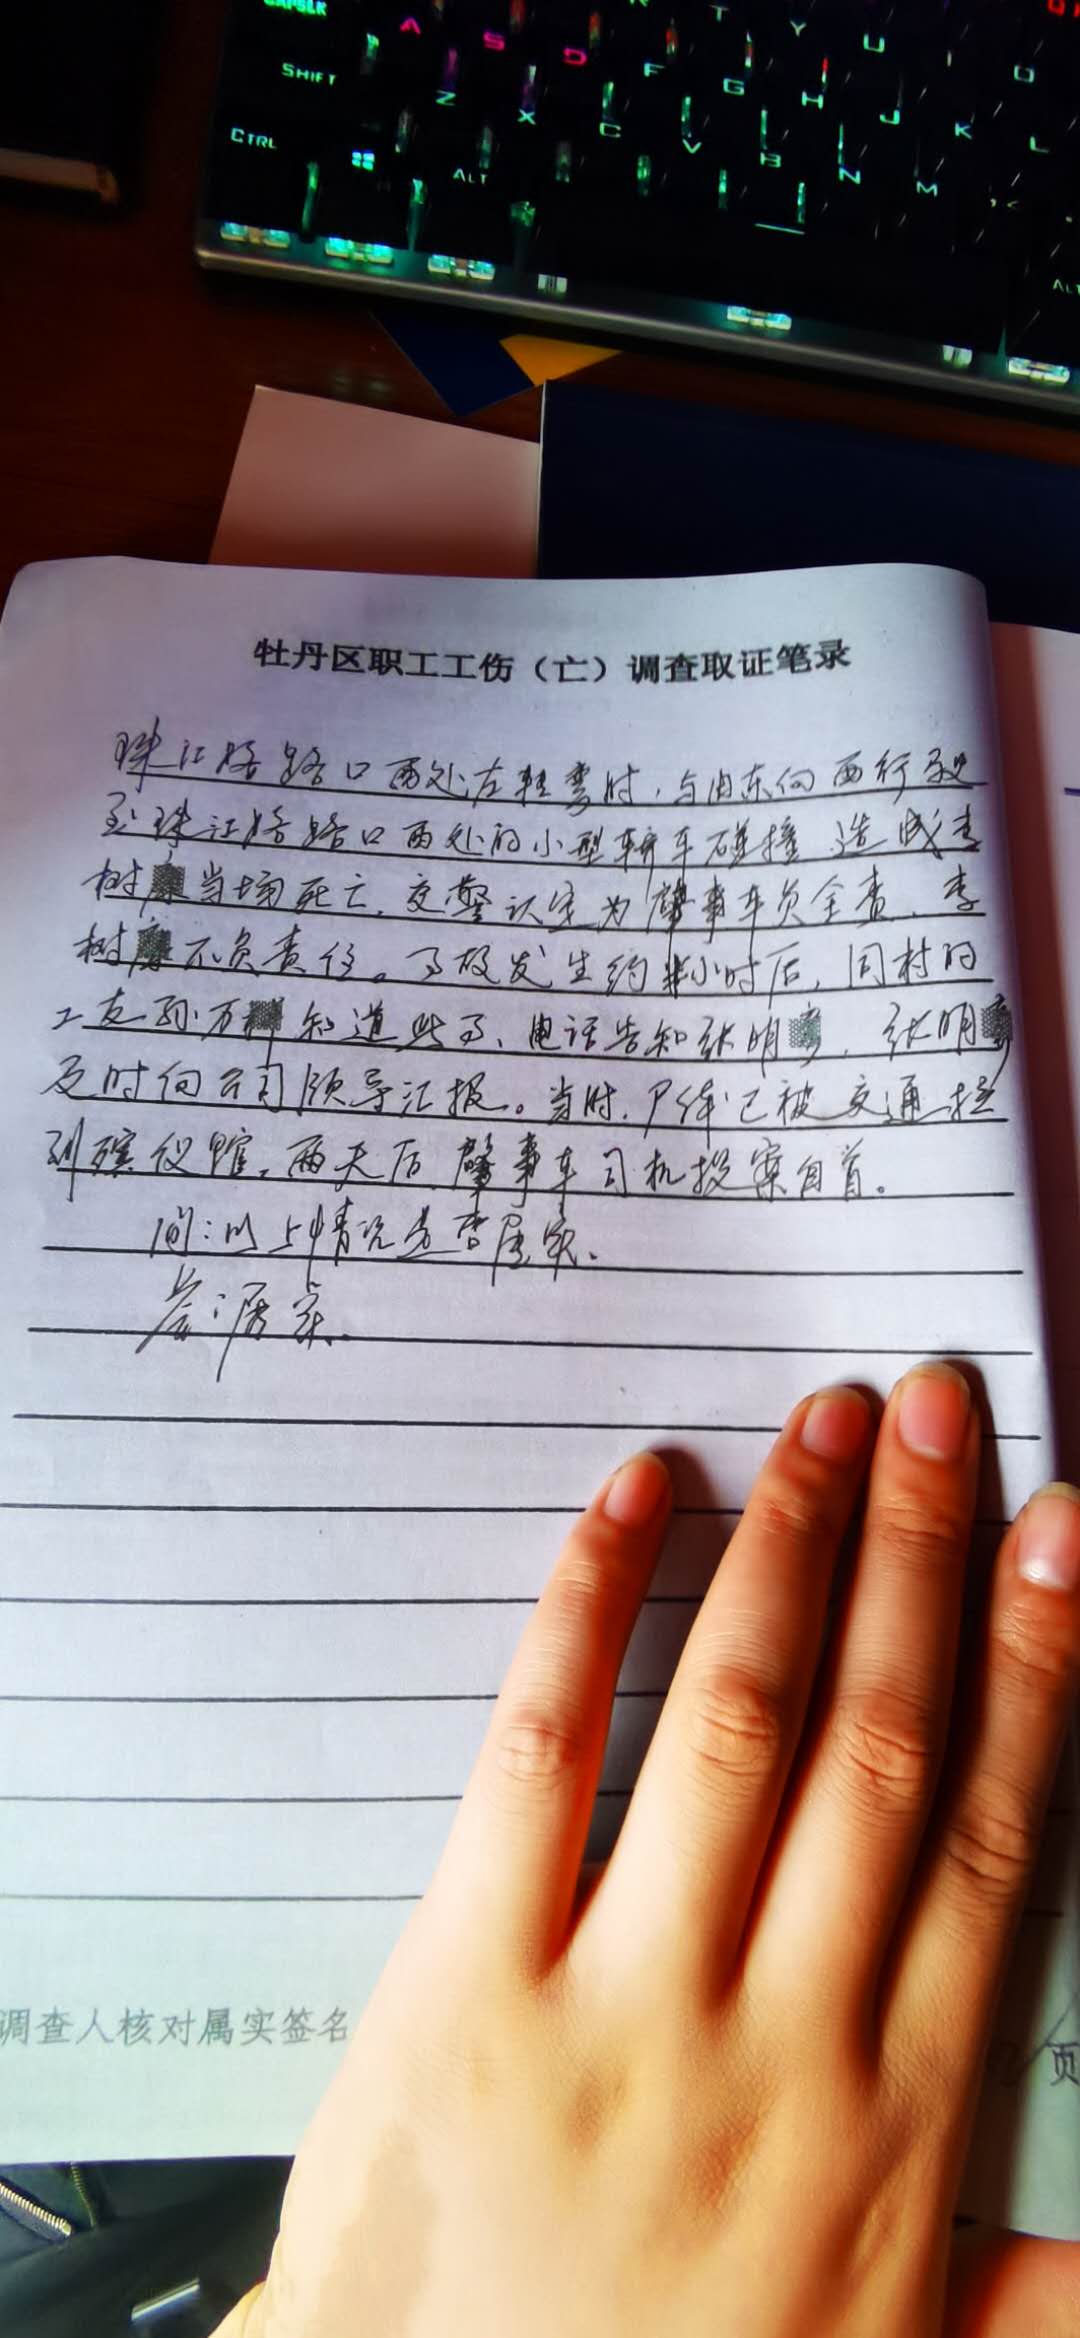 CAPSLK A S D F T Y U I O
SHIFT Z X C V B N M G H J K L
CTRL ALT
ALT
牡丹区职工工伤（亡）调查取证笔录
珠江路路口西处左转弯时，与由东向西行驶
至珠江路路口西处的小型轿车碰撞，造成李
树当场死亡，交警认定为肇事车负全责，李
树不负责任。事故发生约半小时后，同村的
工友孙万知道此事，电话告知张明，张明
及时向公司领导汇报。当时，尸体已被交通拉
到殡仪馆。两天后，肇事车司机投案自首。
问：以上情况是否属实。
答：属实。
调查人核对属实签名
页